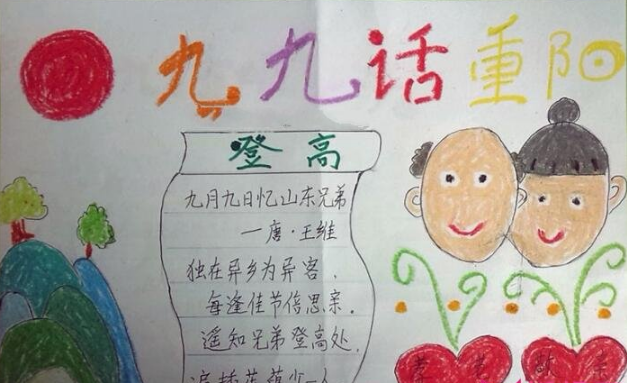 九九话重阳
登高
九月九日忆山东兄弟
—唐·王维
独在异乡为异客，
每逢佳节倍思亲。
遥知兄弟登高处，
遍插茱萸少一人